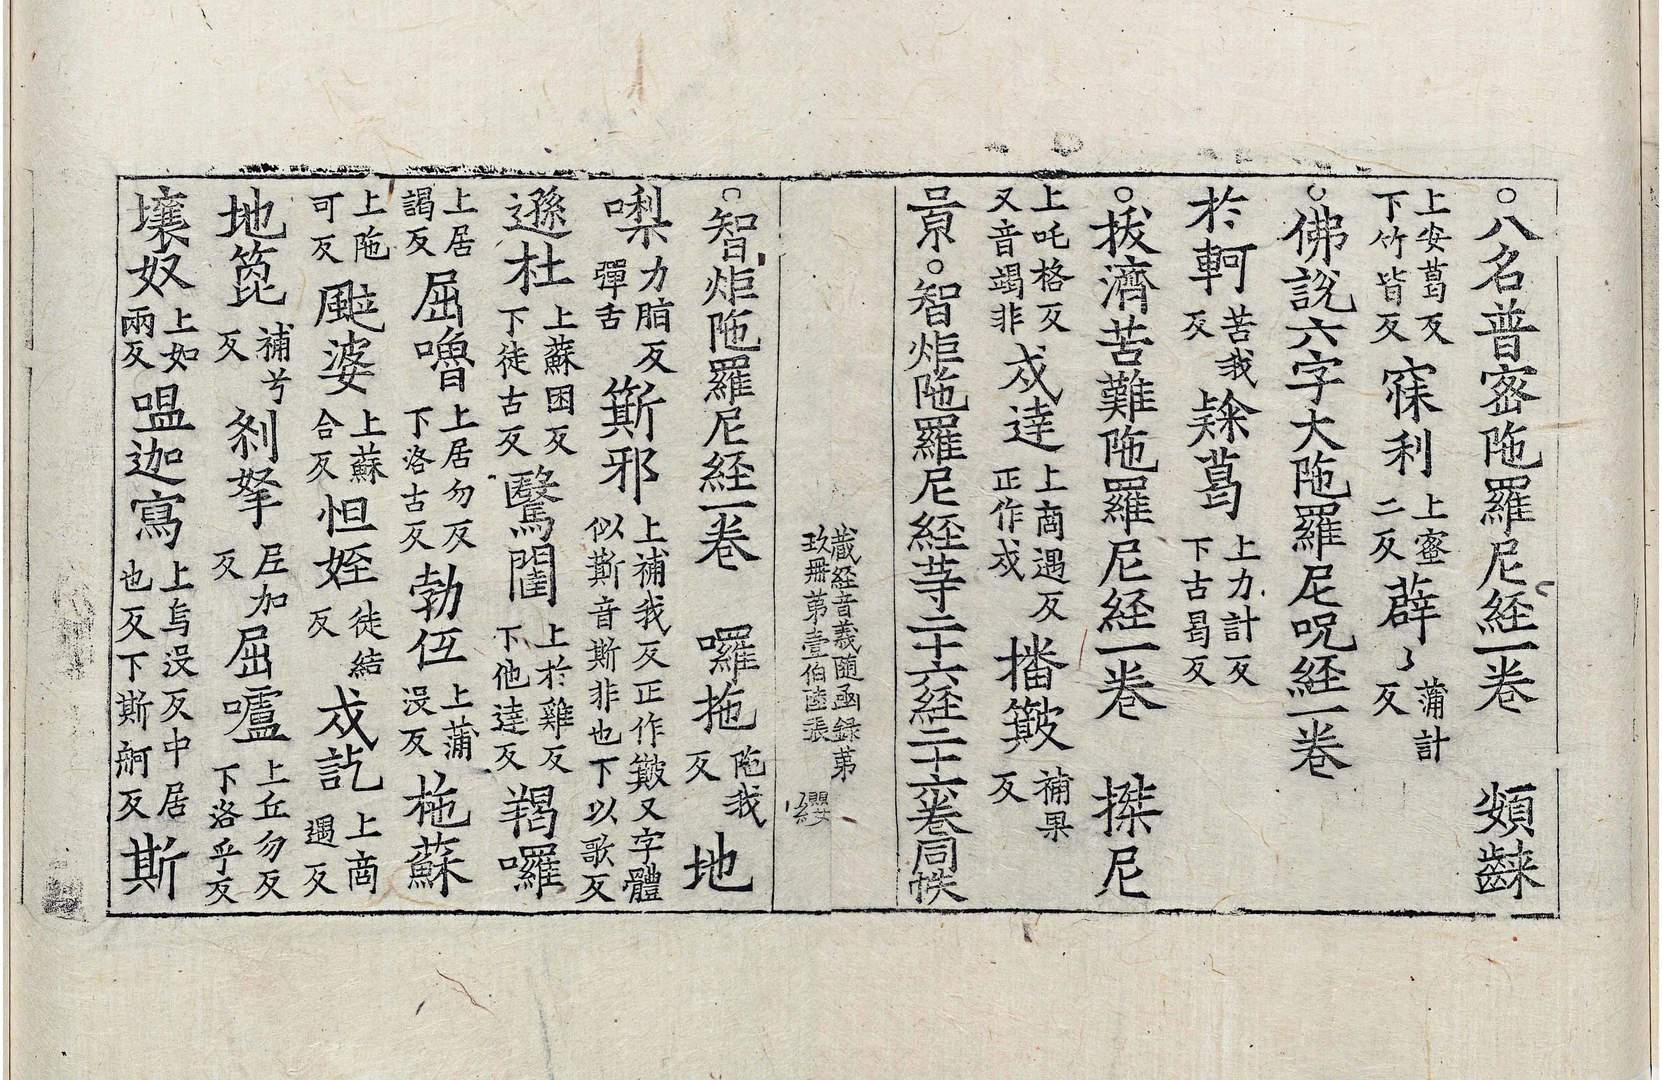 ○八名普密陁羅尼経一卷　頞𪘨
上安葛反下竹皆反寐利上蜜二反薜〻蒲計反
○佛說六字大陁羅尼呪経一卷
於軻苦我反隸葛上力計反下古曷反
○拔濟苦難陁羅尼経一卷　搩尼
上吒格反又音竭非戍達上商遇反正作戍播簸補果反
景○智炬陁羅尼経䓁二十六経二十六卷同帙
蔵経音義隨函録苐
玖冊苐壹伯陸張　纓
○智炬陁羅尼経一卷　囉拖陁我反地
𠼝力脂反彈舌簛邪上補我反正作簸又字體似簛音斯非也下以歌反
遜杜上蘇困反下徒古反鷖闥上於雞反下他達反羯囉
上居謁反屈嚕上居勿反下洛古反勃伍上蒲沒反柂蘇
上陁可反颰婆上蘇合反怛姪徒結反戍訖上商遇反
地箆補兮反剎拏𠂢加反屈嚧上丘勿反下洛乎反
壤奴上如兩反嗢迦寫上烏沒反中居也反下斯舸反斯